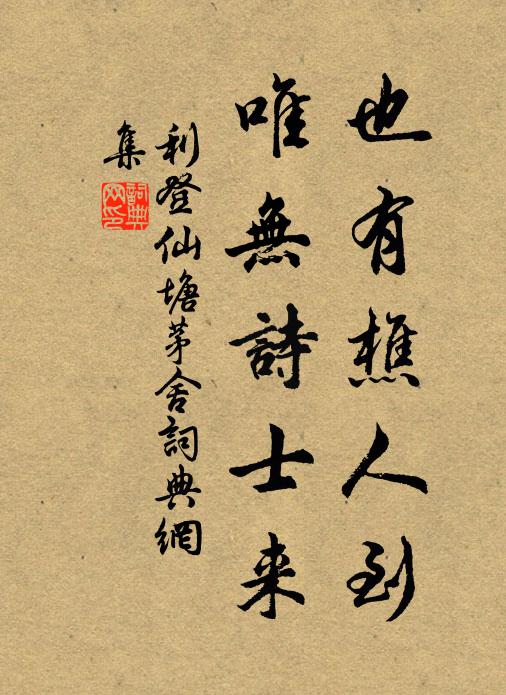 也有樵人到
唯無詩士来
利登仙塘茅舍詞典網
集
詞典网印